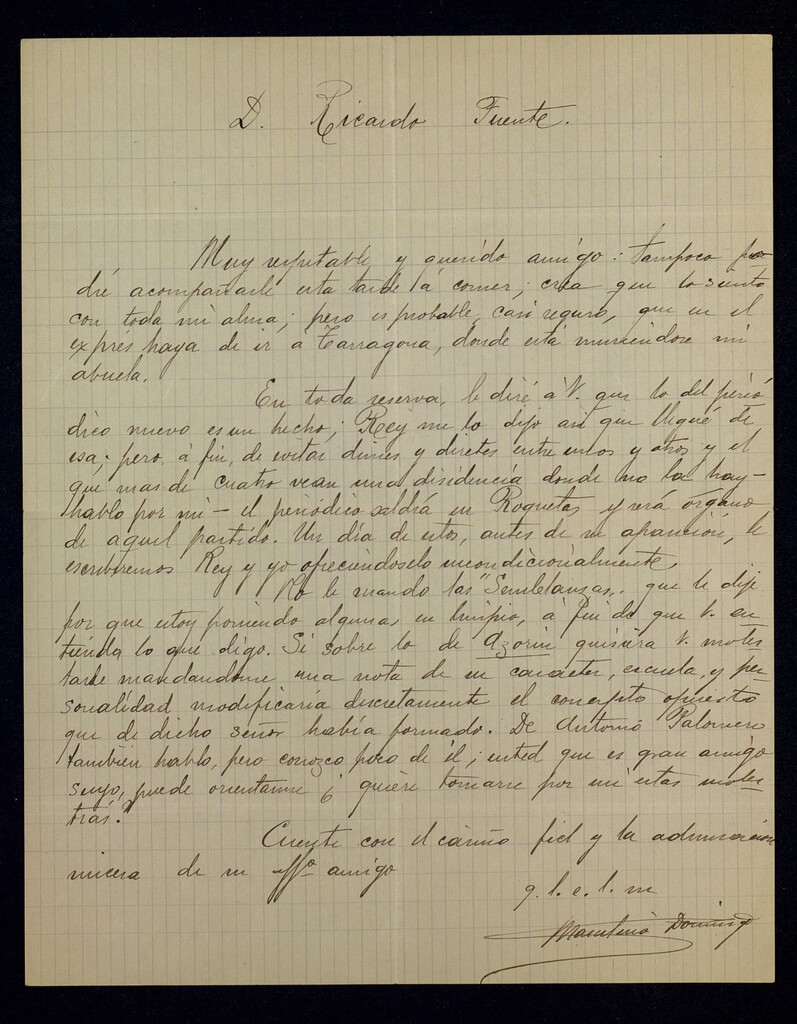 D. Ricardo Fuente.
Muy respetable y querido amigo: tampoco po-
dré acompañarle esta tarde á comer; crea que lo siento
con toda mi alma; pero es probable, casi seguro, que en el
exprés haya de ir á Tarragona, donde está muriéndose mi
abuela.
En toda reserva, le diré á V. que lo del perió
dico nuevo es un hecho; Rey me lo dijo asi que llegué de
esa; pero, á fin, de evitar dimes y diretes entre unos y otros y el
que mas de cuatro vean una disidencia donde no la hay-
hablo por mi - el periódico saldrá en Roquetas y será órgano
de aquel partido. Un día de estos, antes de su aparición, le
escribiremos Rey y yo ofreciéndoselo incondicionalmente.
No le mando las "Semblanzas" que le dije
por que estoy poniendo algunas en limpio, á fin de que V. en
tienda lo que digo. Si sobre lo de Azorín quisiera V. moles
tarse mandandome una nota de su carácter, escuela, y per
sonalidad modificaría discretamente el concepto opuesto
que de dicho señor había formado. De Antonio Palomero
también hablo, pero conozco poco de él; usted que es gran amigo
suyo, puede orientarme ¿quiere tomarse por mi estas moles
tias?
Cuente con el cariño fiel y la admiración
sincera de su affº amigo
q. l. e. l. m
Marcelino Domingo